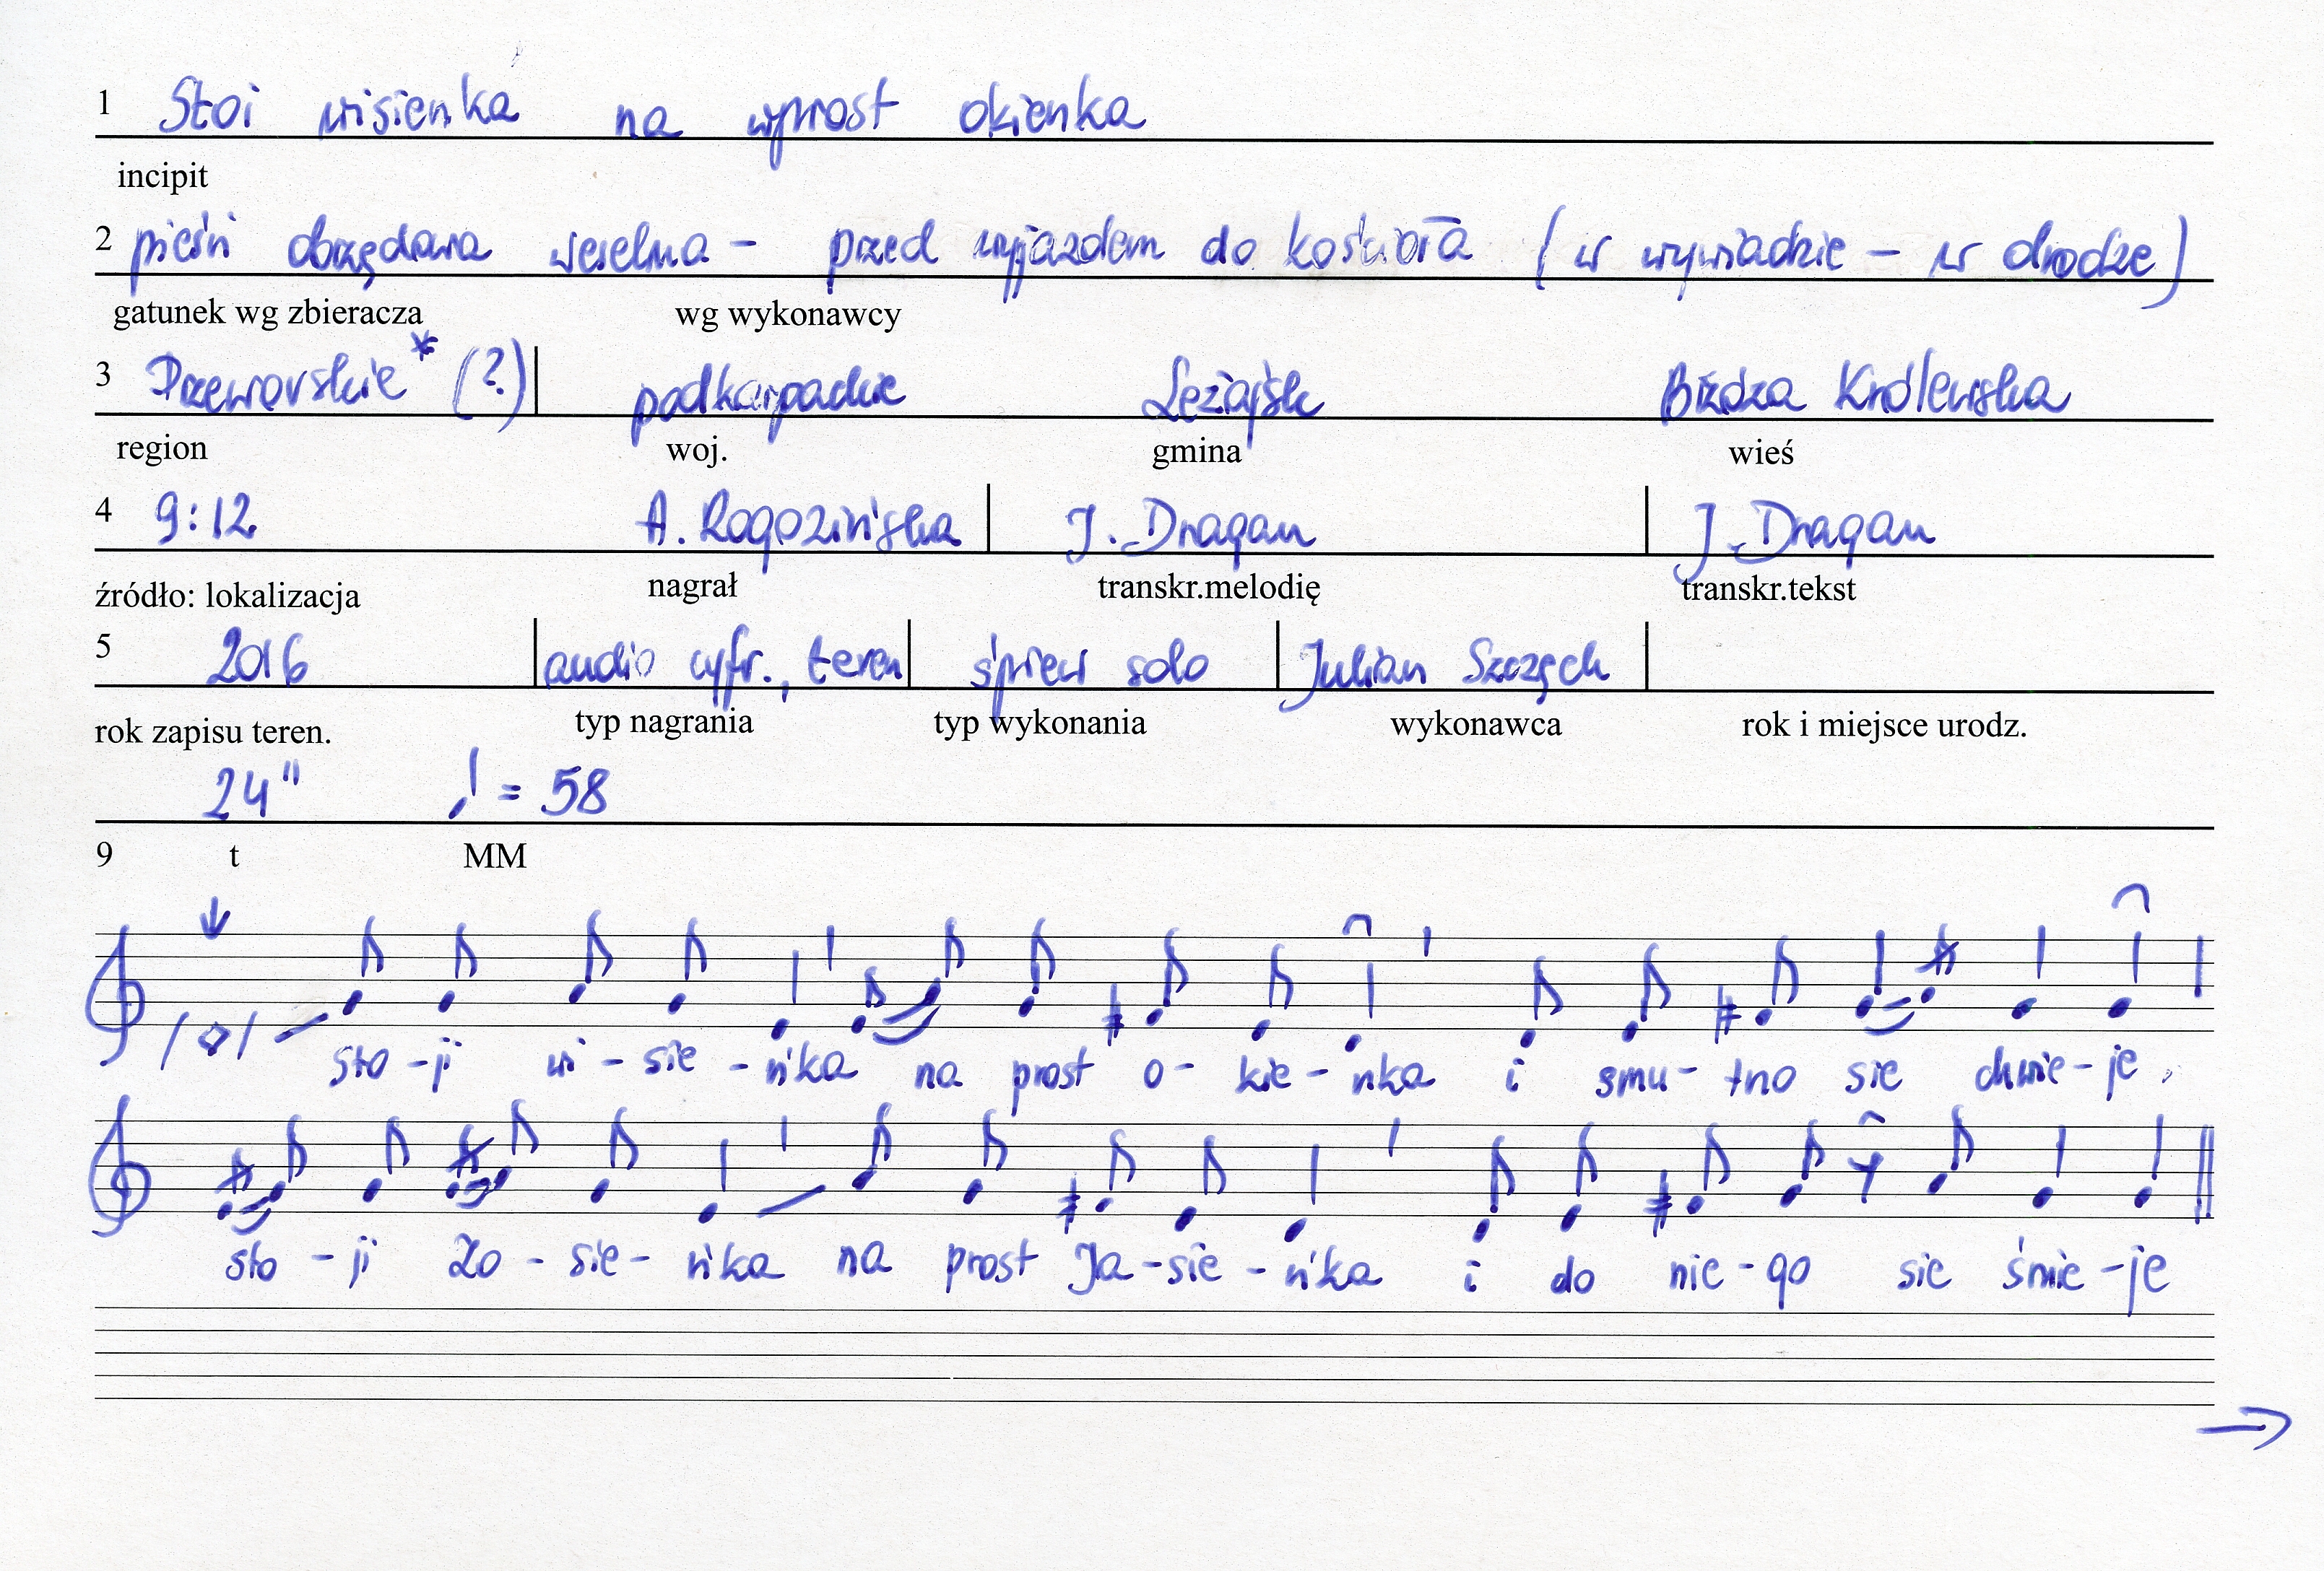 1 Stoi wisienka na wprost okienka
incipit
2 pieśń obrzędowa weselna - przed wyjazdem do kościoła (w wywiadzie - w drodze)
gatunek wg zbieracza wg wykonawcy
3 Przeworskie* (?) podkarpackie Leżajsk Brzóza Królewska
region woj. gmina wieś
4 9:12 A. Rogozińska J. Dragan J. Dragan
źródło: lokalizacja nagrał transkr.melodię transkr.tekst
5 2016 audio cyfr., teren śpiew solo Julian Szczęch
rok zapisu teren. typ nagrania typ wykonania wykonawca rok i miejsce urodz.
24" ♩ = 58
9 t MM
sto - ji wi - sie - ńka na prost o - kie - nka i smu - tno sie chwie - je,
sto - ji Zo - sie - ńka na prost Ja - sie - ńka i do nie - go sie śmie - je